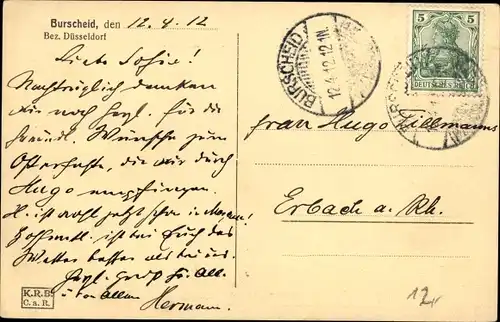 Burscheid, den 12.4.12
Bez. Düsseldorf
Liebe Sofie!
Nachträglich danken
wir noch herzl. für die
freundl. Wünsche zum
Osterfeste, die wir durch
Hugo empfingen.
H. ist wohl jetzt schon in
Hoffentl. ist bei Euch das
Wetter besser als bei uns.
Herzl. Gruß für Alle
u. von Allen
Hermann.
K.R.B.
C.a.R.
BURSCHEID
12.4.12.12-1N.
5 5
DEUTSCHES REICH
Frau Hugo Tillmanns
Erbach a. Rh.
12,